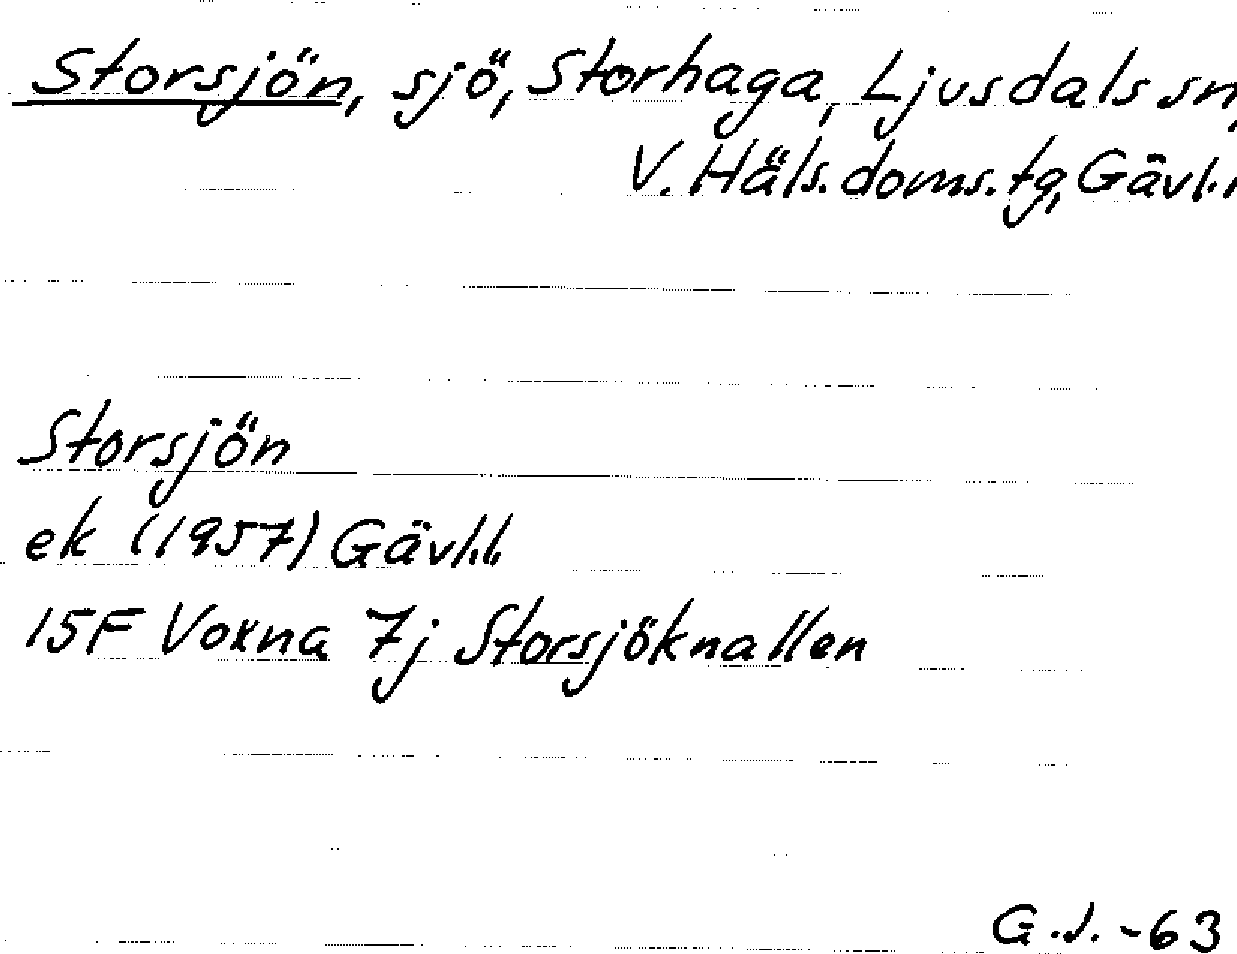 Storsjön, sjö, Storhaga, Ljusdals sn,
V. Häls. doms. tg, Gävl.l
Storsjön
ek (1957) Gävl.l.
15F Voxna 7j Storsjöknallen
G.J. -63